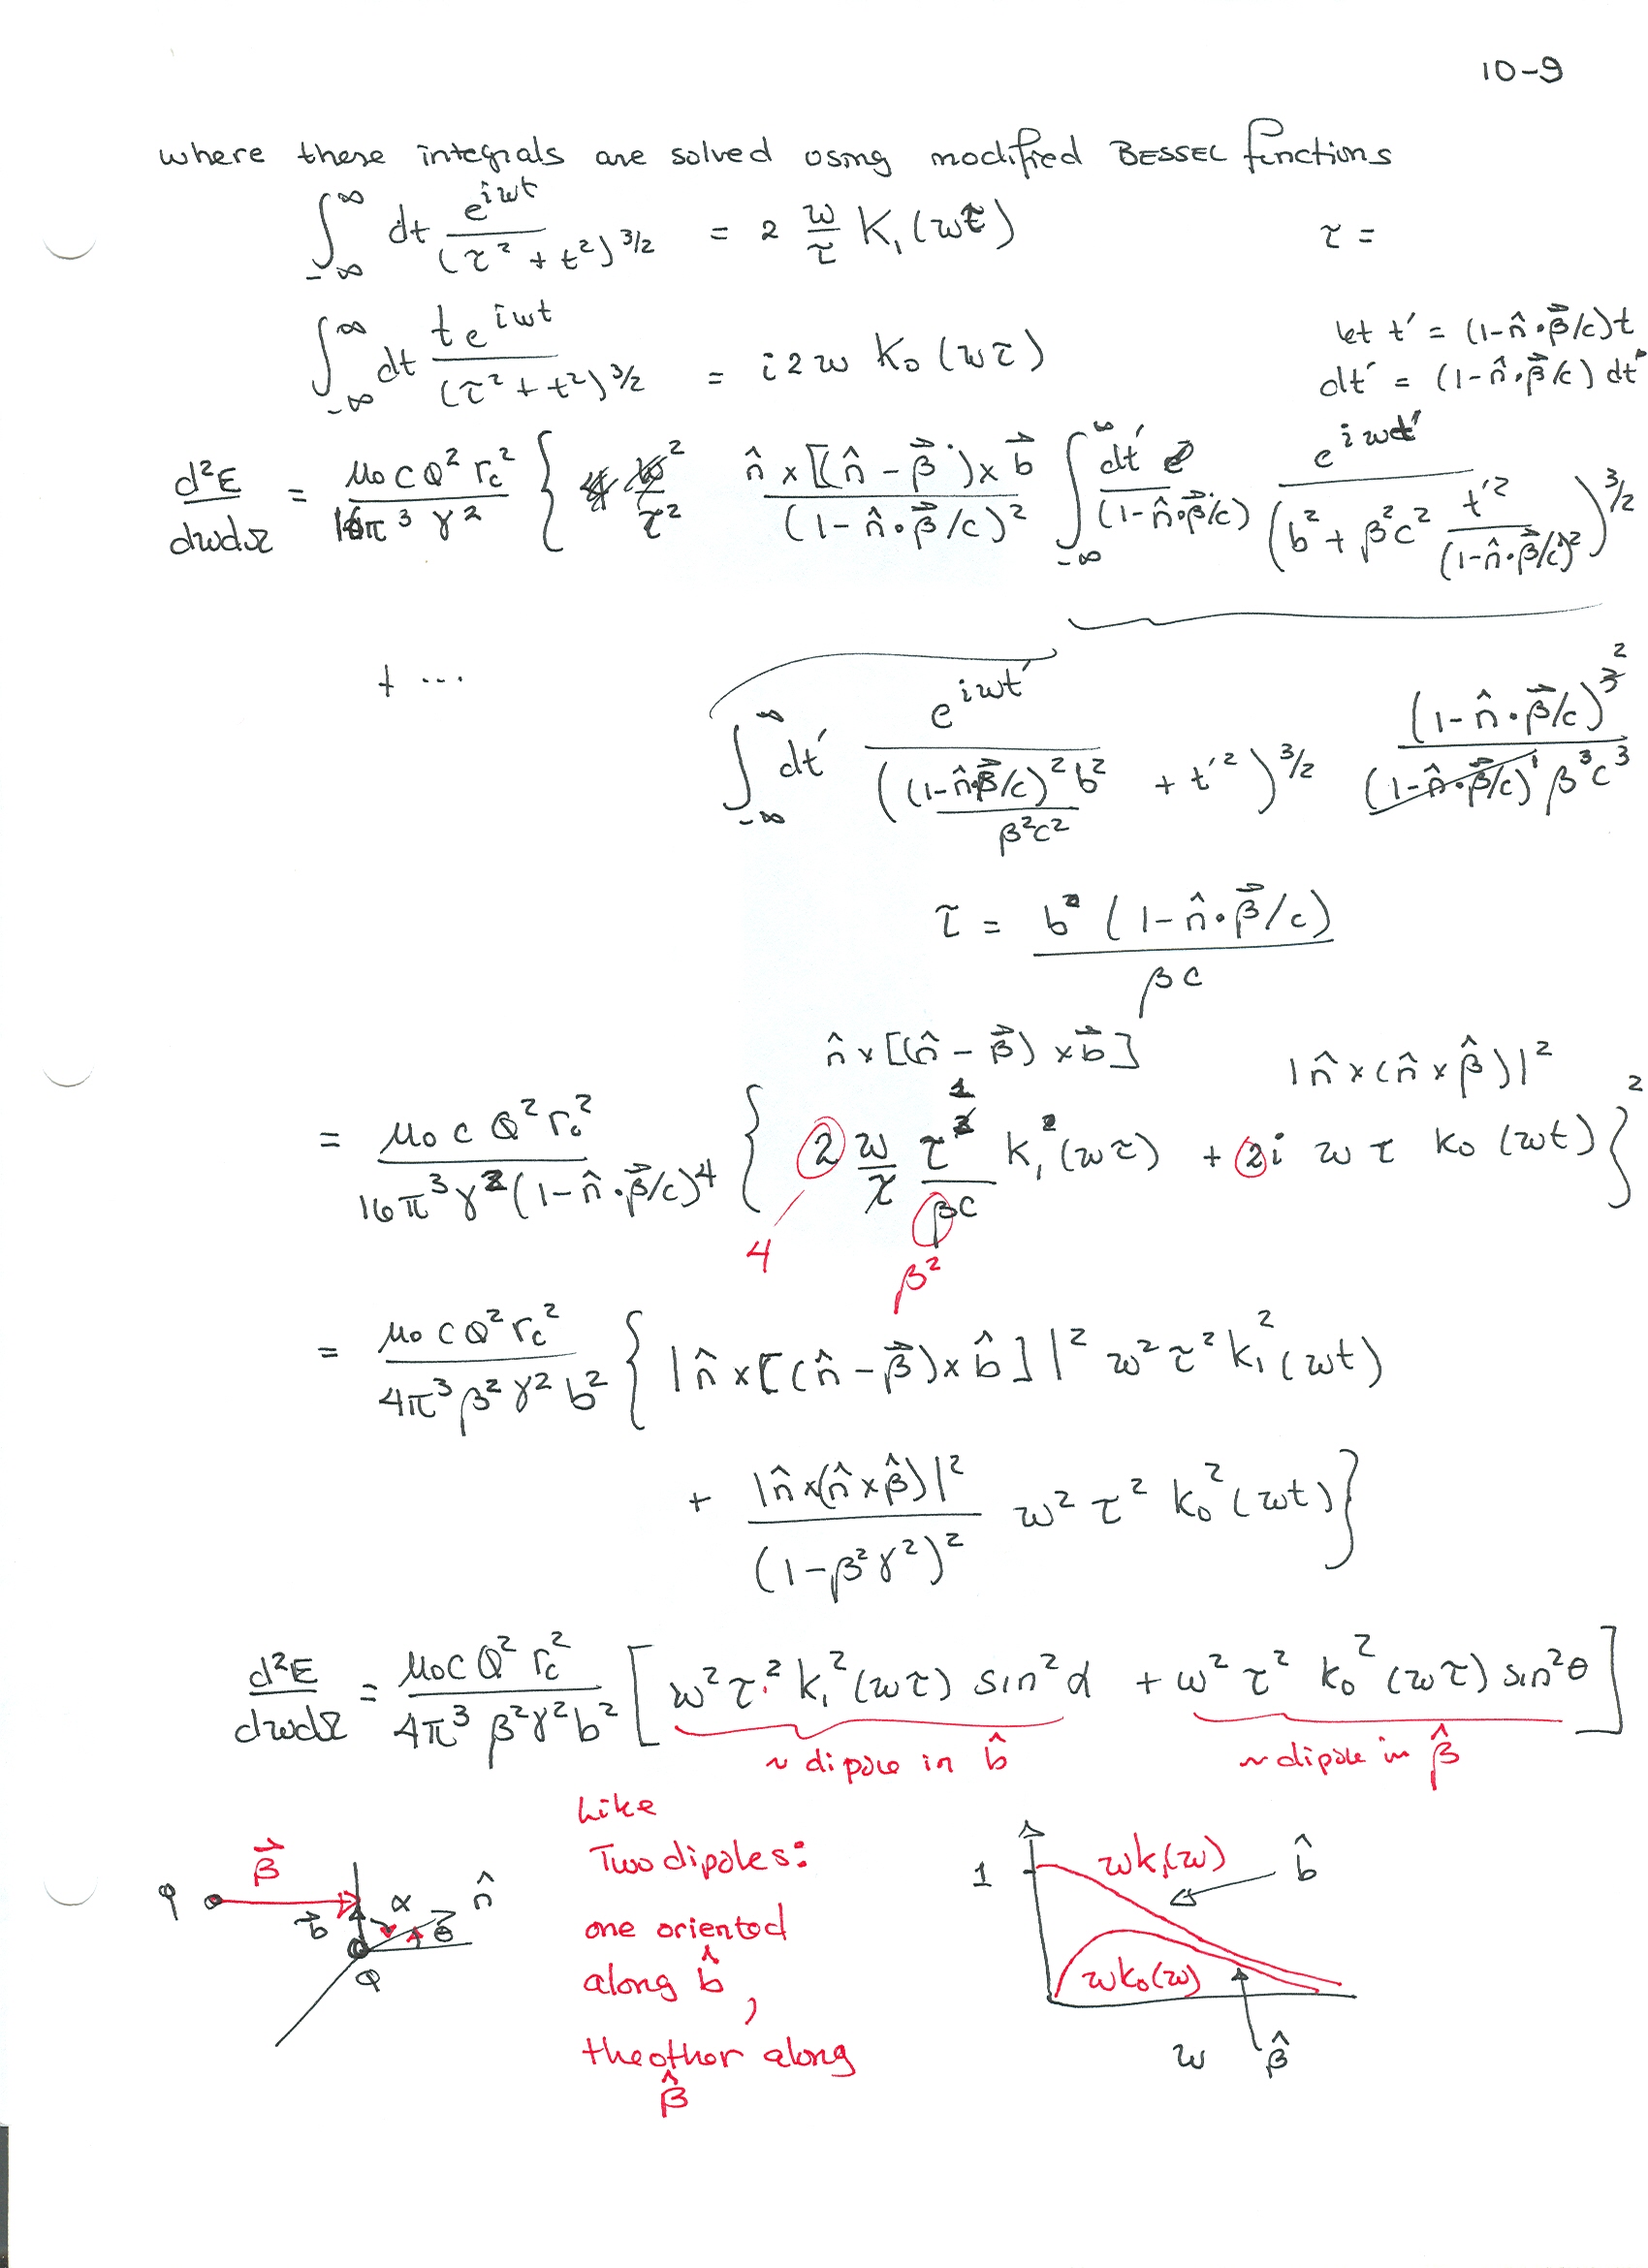 10-9
where these integrals are solved using modified BESSEL functions
∫_{-∞}^{∞} dt e^{iωt} / (τ² + t²)^{3/2} = 2 ω/τ K₁(ωτ)
τ =
∫_{-∞}^{∞} dt t e^{iωt} / (τ² + t²)^{3/2} = i 2 ω K₀(ωτ)
let t′ = (1-n̂·β⃗/c)t
dt′ = (1-n̂·β⃗/c) dt
d²E/dωdΩ = μ₀ c Q² r_c² / 16π³ γ² { n̂ × [(n̂ - β⃗) × b⃗ / (1 - n̂·β⃗/c)² ∫_{-∞}^{∞} dt′ / (1-n̂·β⃗/c) e^{iωt′} / (b² + β²c² t′² / (1-n̂·β⃗/c)²)^{3/2}
+ ...
∫_{-∞}^{∞} dt′ e^{iωt′} / ((1-n̂·β⃗/c)² b² / β²c² + t′²)^{3/2} (1-n̂·β⃗/c)² / (1-n̂·β⃗/c)¹ β³c³
τ = b (1-n̂·β⃗/c) / βc
n̂ × [(n̂ - β⃗) × b⃗]
|n̂ × (n̂ × β̂)|²
= μ₀ c Q² r_c² / 16π³γ²(1-n̂·β⃗/c)⁴ { 2 ω/τ τ / βc K₁²(ωτ) + 2i ω τ K₀(ωt) }²
4
β²
= μ₀ c Q² r_c² / 4π³ β² γ² b² { |n̂ × [(n̂ - β⃗) × b̂]|² ω² τ² K₁²(ωt)
+ |n̂ × (n̂ × β̂)|² / (1-β²γ²)² ω² τ² K₀²(ωt) }
d²E/dωdΩ = μ₀ c Q² r_c² / 4π³ β²γ²b² [ ω² τ² K₁²(ωτ) sin²α + ω² τ² K₀²(ωτ) sin²θ ]
~ dipole in b̂
~ dipole in β̂
Like
Two dipoles:
one oriented
along b̂,
the other along
β̂
q
β⃗
b⃗
α
n̂
θ
Q
1
ωK₁(ω)
b̂
ωK₀(ω)
ω
β̂